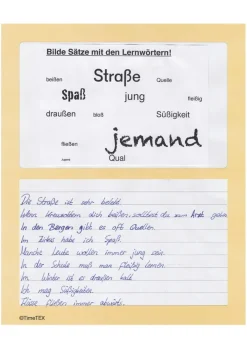 Bilde Sätze mit den Lernwörtern!
beißen Straße Quelle
Spaß jung fleißig
draußen bloß Süßigkeit
fließen jemand
Qual
Die Straße ist sehr belebt.
Wenn dich beißen, solltest du zum Arzt gehen.
In den Bergen gibt es oft Quellen.
Im Zirkus habe ich Spaß.
Manche Leute wollen immer jung sein.
In der Schule muß man fleißig lernen.
Im Winter ist es draußen kalt.
Ich mag Süßigkeiten.
Flüsse fließen immer abwärts.
©TimeTEX